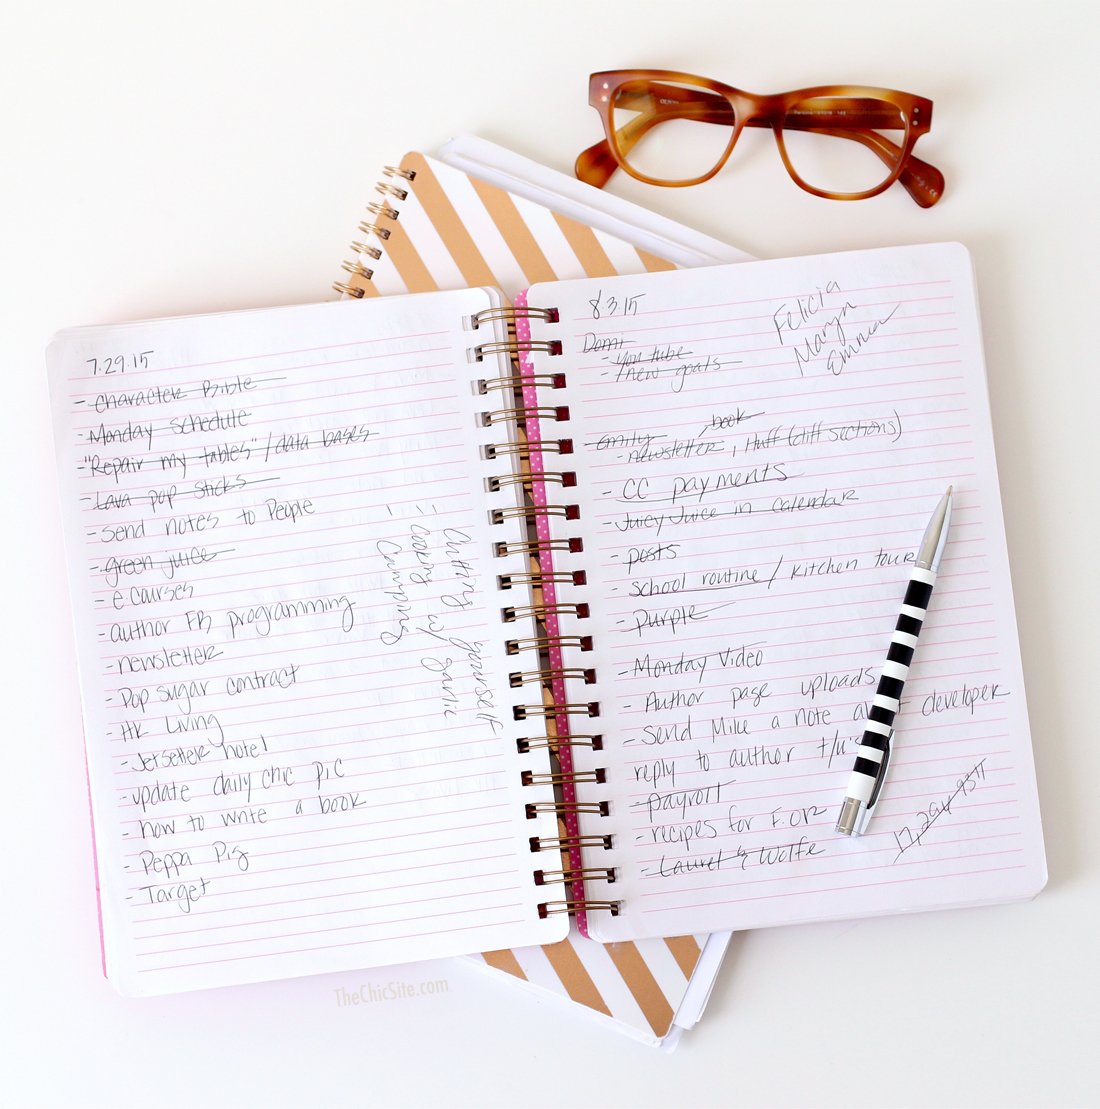 7.29.15
- Character Bible
- Monday schedule
- "Repair my tables" / data bases
- Lava pop sticks
- send notes to People
- green juice
- e courses
- author FB programming
- newsletter
- Pop sugar contract
- HK Living
- Jetsetter hotel
- update daily chic pic
- how to write a book
- Peppa Pig
- Target
outting yourself
- Cooking w/ garlic
- Camping
8.3.15
Felicia
Maryn
Emma
Domi
- You tube
- new goals
book
- emily
- newsletter, Huff (diff sections)
- CC payments
- Juicy Juice in calendar
- posts
- school routine / kitchen tour
- purple
- Monday Video
- Author page uploads
- Send Mike a note developer
reply to author
- payroll
- recipes for F.OR
- Laurel & Wolfe
TheChicSite.com